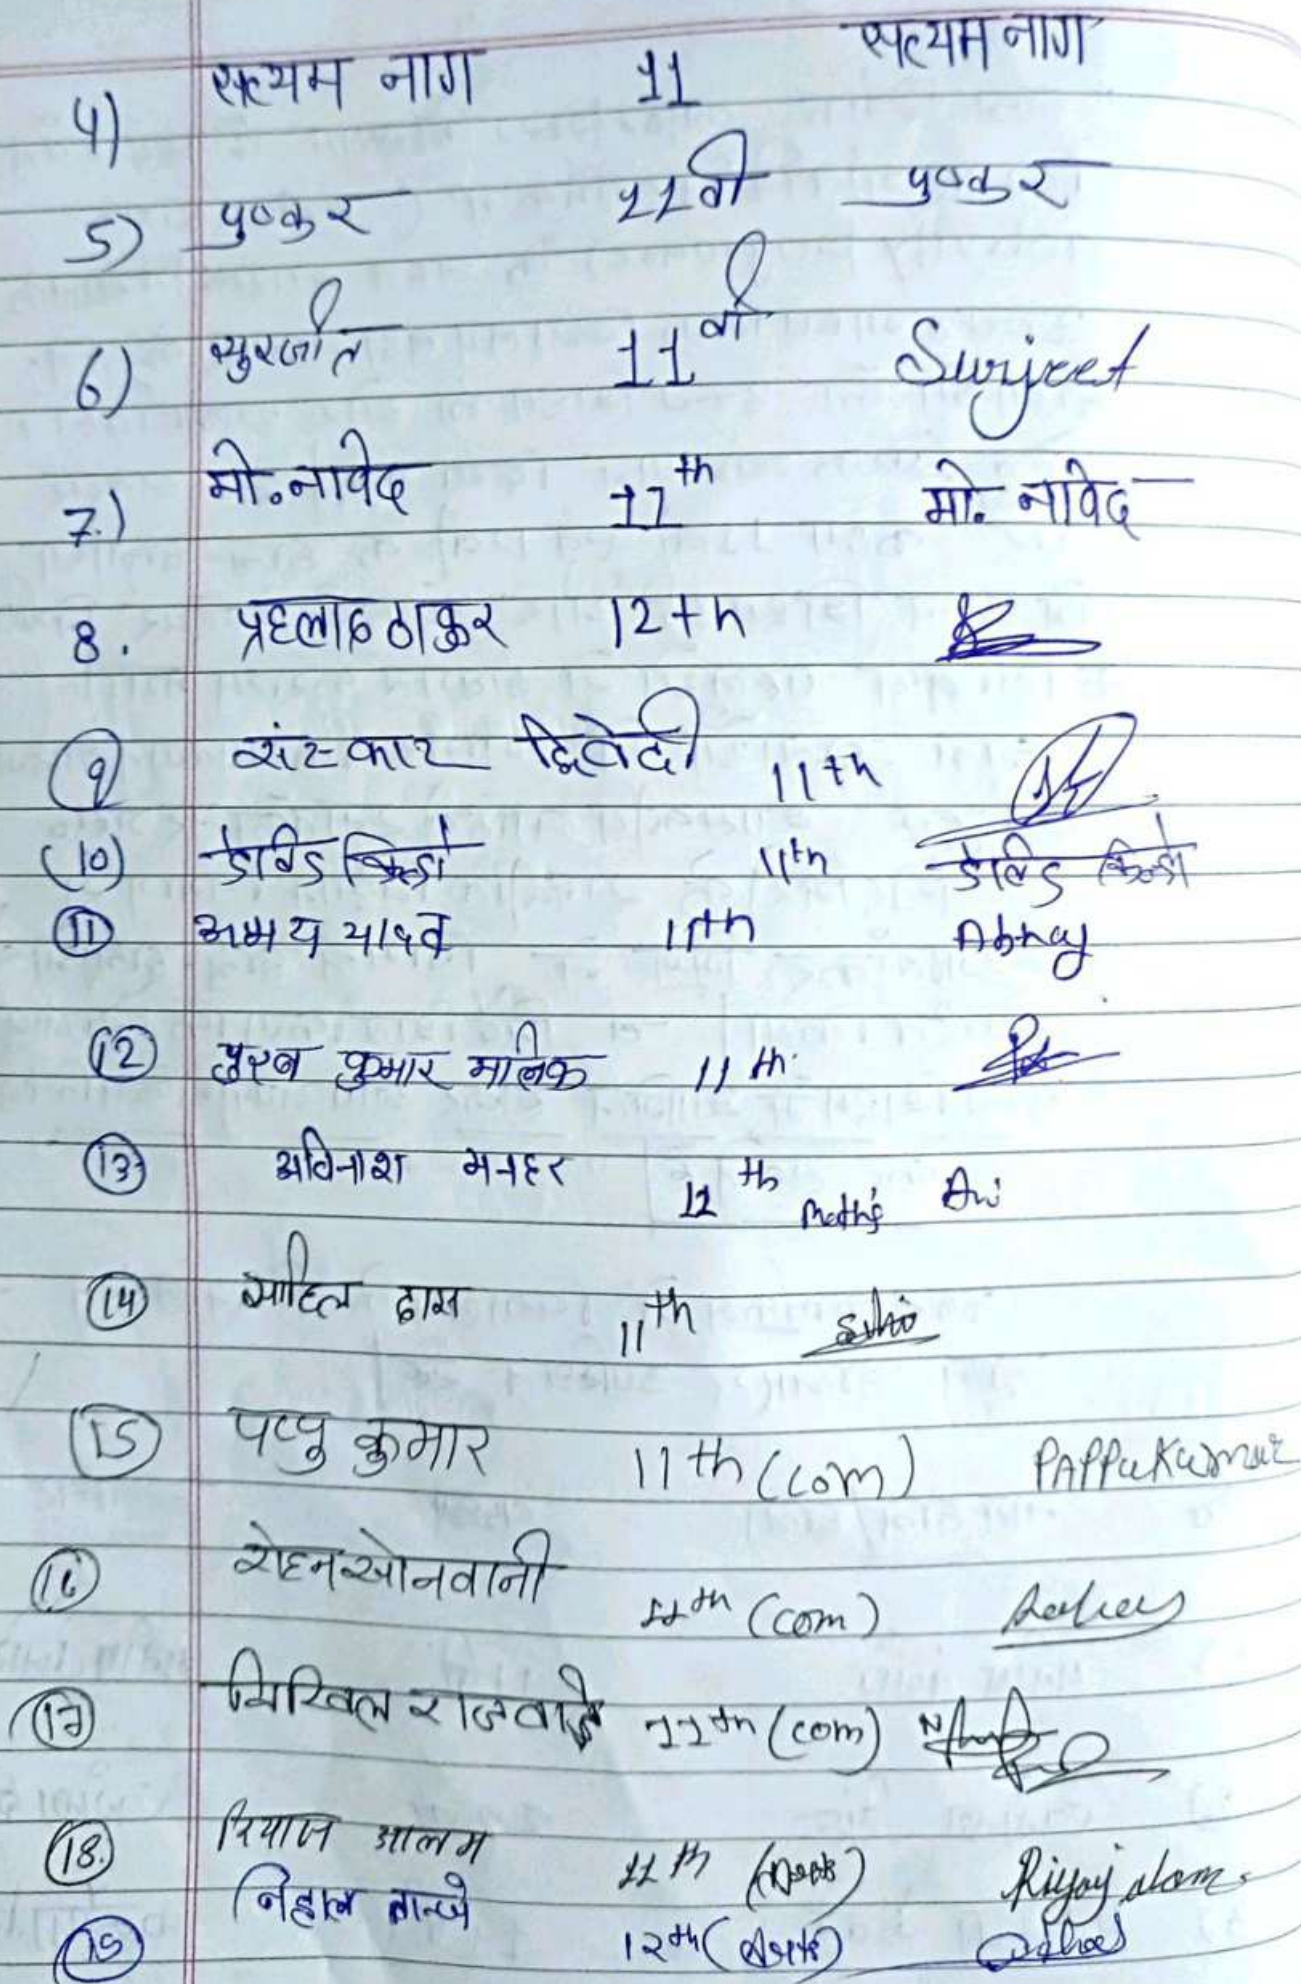 4) सत्यम नाग 11 सत्यम नाग
5) पुष्कर 11वी पुष्कर
6) सुरजीत 11वी Surjeet
7.) मो. नावेद 11th मो. नावेद
8. प्रहलाद ठाकुर 12th
9 संस्कार द्विवेदी 11th
(10) डेविड किन्डो 11th डेविड किन्डो
11 अभय यादव 11th Abhay
12 कुमार मालिक 11th
13 अविनाश मनहर 12th Maths Avi
14 साहिल दास 11th
15 पप्पु कुमार 11th (com) PAPPu Kumar
16 रोहन सोनवानी 11th (com)
17 निखिल राजवाड़े 11th (com)
18. रियाज आलम 11th (Arts) Riyaj alam.
19 निहाल 12th (Arts)